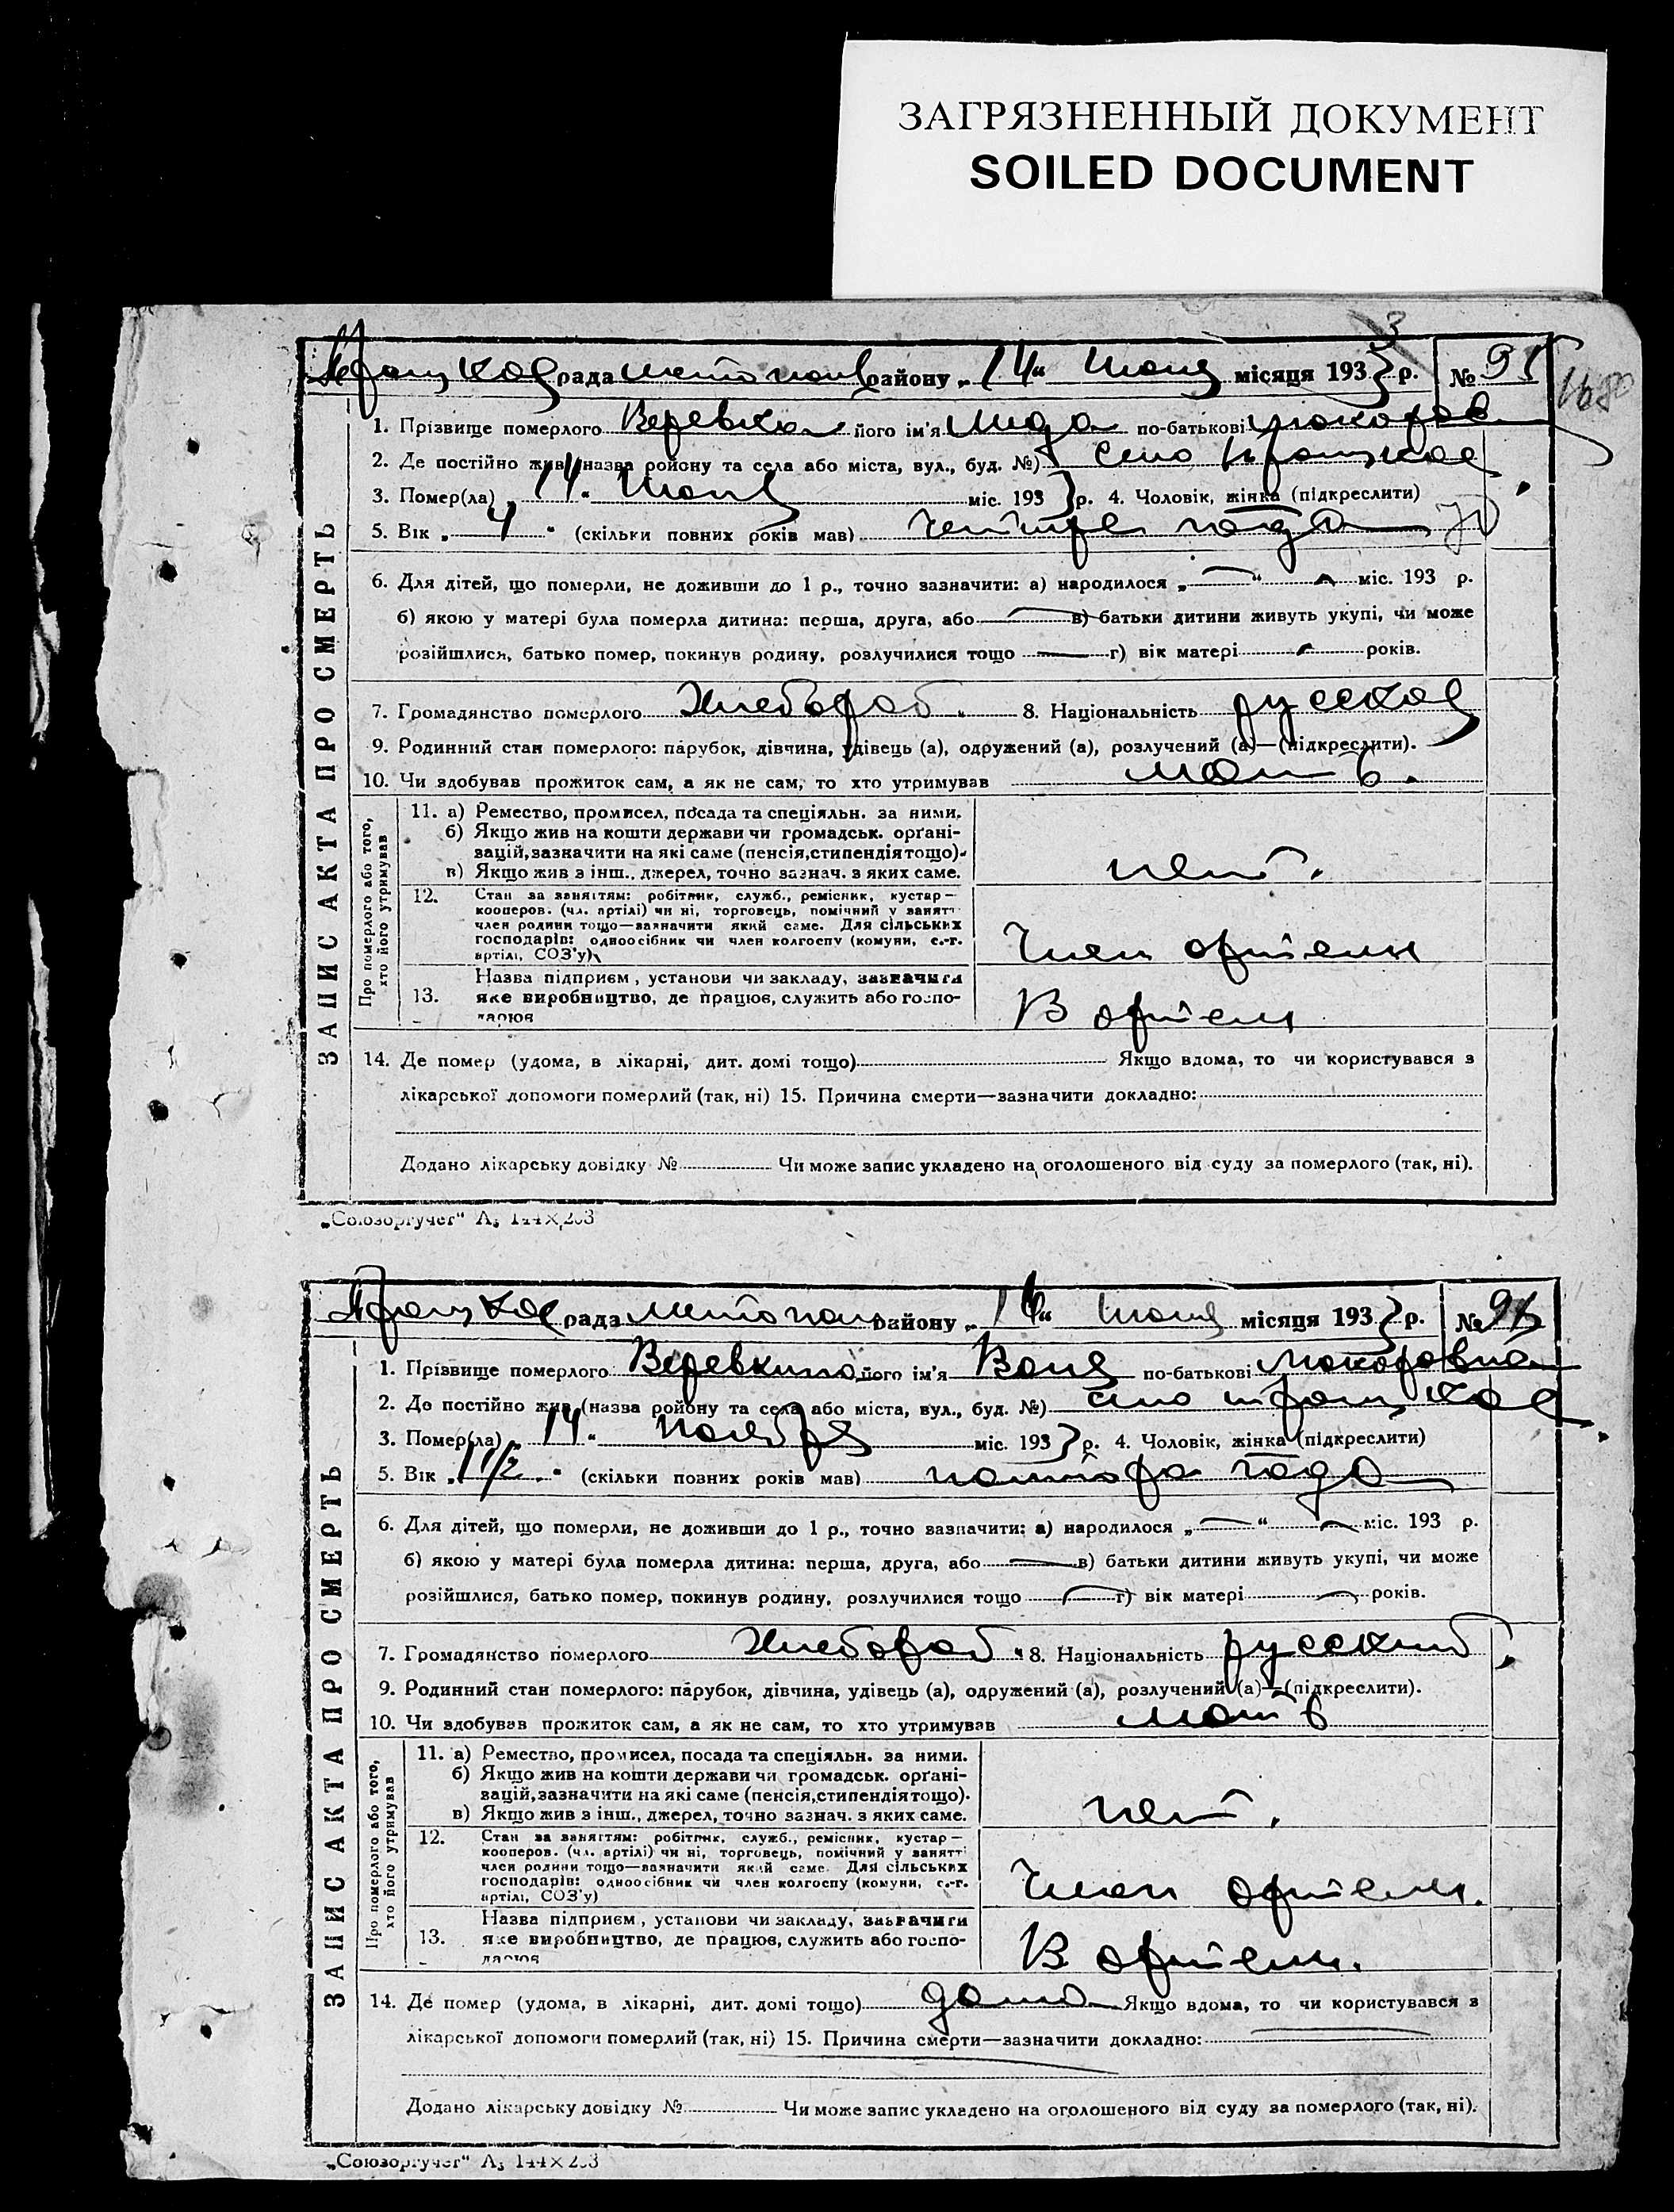 ЗАГРЯЗНЕННЫЙ ДОКУМЕНТ
SOILED DOCUMENT
рада район у „14“ Июня місяця 1933 р. № 95
1. Прізвище померлого Веревка його ім'я Лида по-батькові
2. Де постійно жив (назва ройону та села або міста, вул., буд. №) Село
3. Помер(ла) „14“ Июня міс. 1933 р. 4. Чоловік, жінка (підкреслити)
5. Вік „4“ (скільки повних років мав) четире года
6. Для дітей, що померли, не доживши до 1 р., точно зазначити: а) народилося „—“ — міс. 193 р.
б) якою у матері була померла дитина: перша, друга, або — в) батьки дитини живуть укупі, чи може
розійшлися, батько помер, покинув родину, розлучилися тощо — г) вік матері — років.
7. Громадянство померлого Хлебороб. 8. Національність русская
9. Родинний стан померлого: парубок, дівчина, удівець (а), одружений (а), розлучений (а)—(підкреслити).
10. Чи здобував прожиток сам, а як не сам, то хто утримував мать.
ЗАПИС АКТА ПРО СМЕРТЬ
Про померлого або того, хто його утримував
11. а) Ремество, промисел, посада та спеціяльн. за ними.
б) Якщо жив на кошти держави чи громадськ. орґані-
зацій, зазначити на які саме (пенсія, стипендія тощо).
в) Якщо жив з інш. джерел, точно зазнач. з яких саме.
нет.
12. Стан за заняттям: робітник, служб., ремісник, кустар—
кооперов. (чл. артілі) чи ні, торговець, помічний у занятт
член родини тощо—зазначити який саме. Для сільських
господарів: одноосібник чи член колгоспу (комуни, с.-г.
артілі, СОЗ'у)
Член артели
13. Назва підприєм, установи чи закладу, зазначити
яке виробництво, де працює, служить або госпо-
дарює
В артели
14. Де помер (удома, в лікарні, дит. домі тощо) Якщо вдома, то чи користувався з
лікарської допомоги померлий (так, ні) 15. Причина смерти—зазначити докладно:
Додано лікарську довідку № Чи може запис укладено на оголошеного від суду за померлого (так, ні).
„Союзоргучет“ А5 144×203
рада району „14“ Июня місяця 1933 р. №
1. Прізвище померлого Веревкина його ім'я Ваня по-батькові
2. Де постійно жив (назва ройону та села або міста, вул., буд. №) село
3. Помер(ла) „14“ Ноября міс. 1933 р. 4. Чоловік, жінка (підкреслити)
5. Вік „1 1/2“ (скільки повних років мав) полтора года
6. Для дітей, що померли, не доживши до 1 р., точно зазначити: а) народилося „—“ — міс. 193 р.
б) якою у матері була померла дитина: перша, друга, або — в) батьки дитини живуть укупі, чи може
розійшлися, батько помер, покинув родину, розлучилися тощо — г) вік матері — років.
7. Громадянство померлого Хлебороб 8. Національність русский
9. Родинний стан померлого: парубок, дівчина, удівець (а), одружений (а), розлучений (а)—(підкреслити).
10. Чи здобував прожиток сам, а як не сам, то хто утримував мать
ЗАПИС АКТА ПРО СМЕРТЬ
Про померлого або того, хто його утримував
11. а) Ремество, промисел, посада та спеціяльн. за ними.
б) Якщо жив на кошти держави чи громадськ. орґані-
зацій, зазначити на які саме (пенсія, стипендія тощо).
в) Якщо жив з інш., джерел, точно зазнач. з яких саме.
нет.
12. Стан за заняттям: робітник, служб., ремісник, кустар—
кооперов. (чл. артілі) чи ні, торговець, помічний у занятт
член родини тощо—зазначити який саме. Для сільських
господарів: одноосібник чи член колгоспу (комуни, с.-г.
артілі, СОЗ'у)
Член артели.
13. Назва підприєм, установи чи закладу, зазначити
яке виробництво, де працює, служить або госпо-
дарює
В артели.
14. Де помер (удома, в лікарні, дит. домі тощо) дома Якщо вдома, то чи користувався з
лікарської допомоги померлий (так, ні) 15. Причина смерти—зазначити докладно:
Додано лікарську довідку № Чи може запис укладено на оголошеного від суду за померлого (так, ні).
„Союзоргучет“ А5 144×203